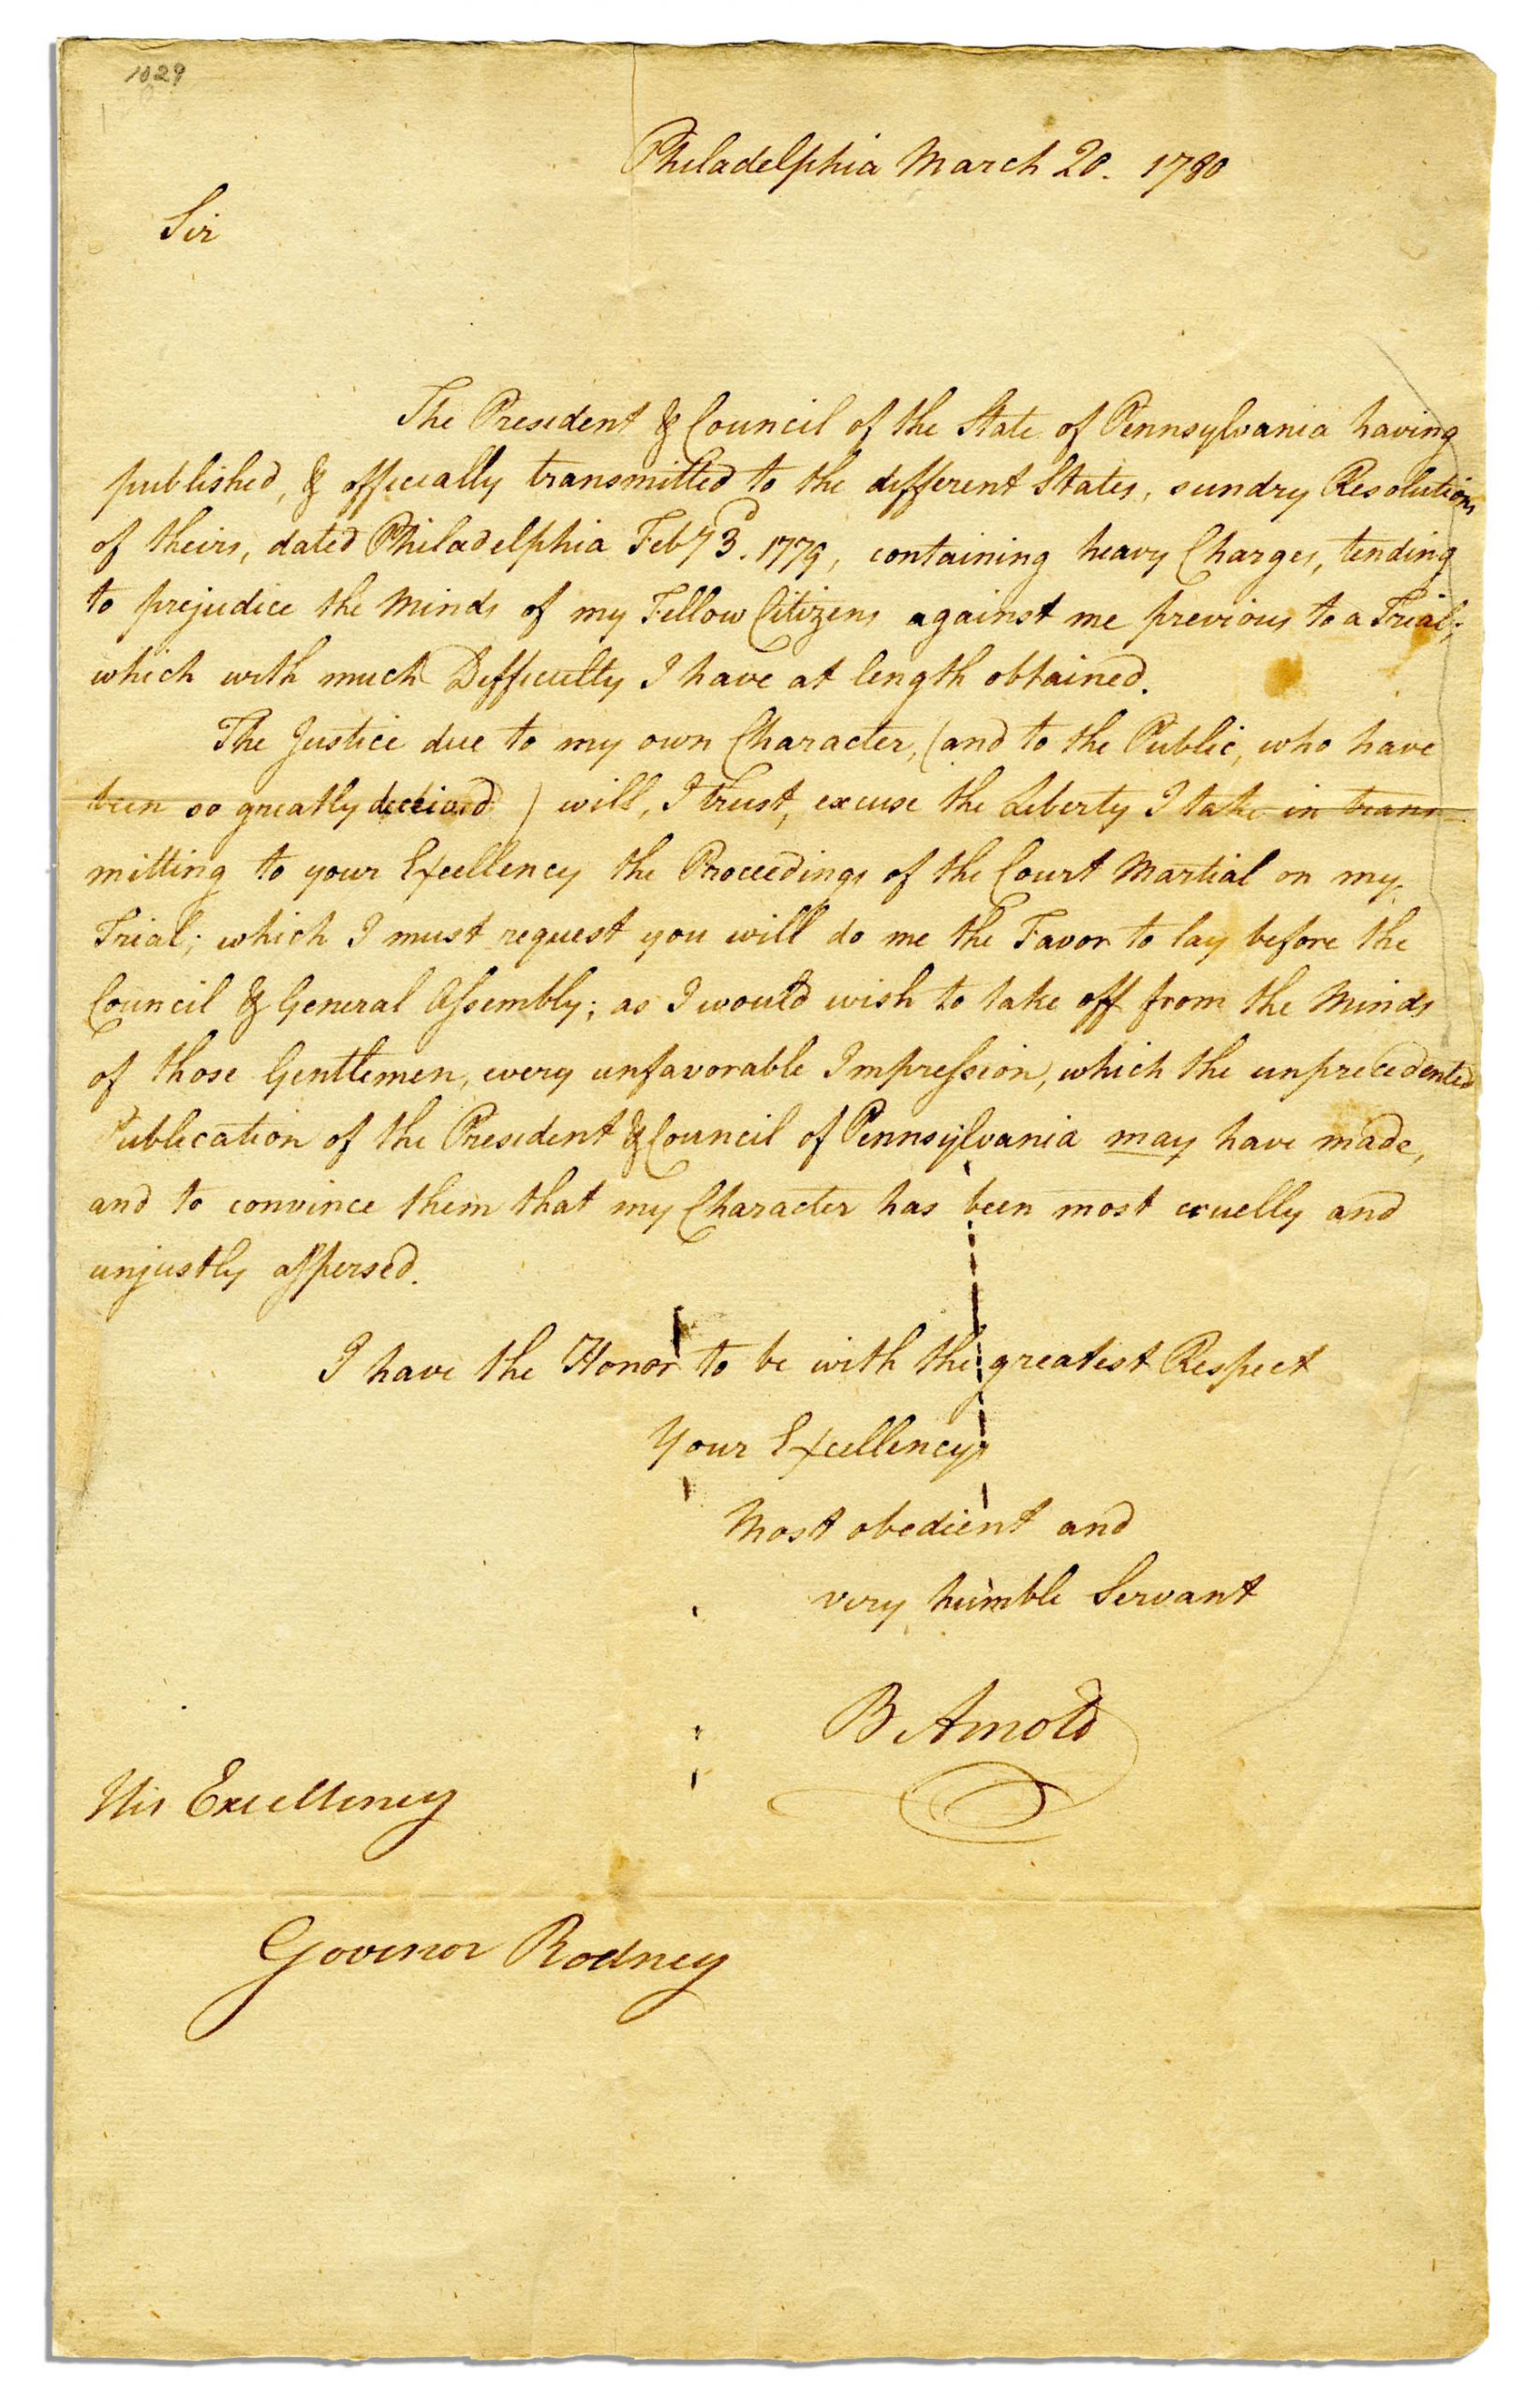 1029
Philadelphia March 20. 1780
Sir
The President & Council of the State of Pennsylvania having
published, & officially transmitted to the different States, sundry Resolutions
of theirs, dated Philadelphia Feby 3d. 1779, containing heavy Charges, tending
to prejudice the Minds of my Fellow Citizens against me previous to a Trial;
which with much Difficulty I have at length obtained.
The Justice due to my own Character, (and to the Public, who have
been so greatly deceived) will, I trust, excuse the Liberty I take in trans-
mitting to your Excellency the Proceedings of the Court Martial on my
Trial; which I must request you will do me the Favor to lay before the
Council & General Assembly; as I would wish to take off from the Minds
of those Gentlemen, every unfavorable Impression, which the unprecedented
Publication of the President & Council of Pennsylvania may have made,
and to convince them that my Character has been most cruelly and
unjustly aspersed.
I have the Honor to be with the greatest Respect
Your Excellencys
Most obedient and
very humble Servant
B Arnold
His Excellency
Govenor Rodney